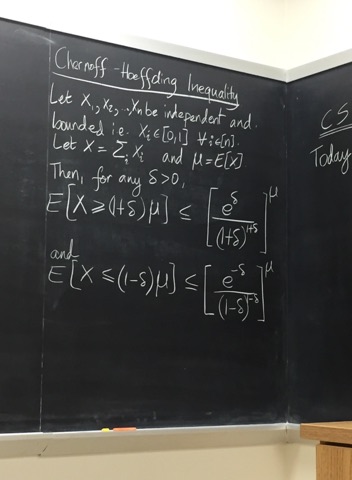 Chernoff-Hoeffding Inequality
Let X₁, X₂, ..., Xn be independent and
bounded i.e. Xᵢ ∈ [0,1] ∀ i ∈ [n].
Let X = Σᵢ Xᵢ and μ = E[X]
Then, for any δ > 0,
E[X ≥ (1+δ)μ] ≤ [e^δ / (1+δ)^(1+δ)]^μ
and
E[X ≤ (1-δ)μ] ≤ [e^(-δ) / (1-δ)^(1-δ)]^μ
CS
Today